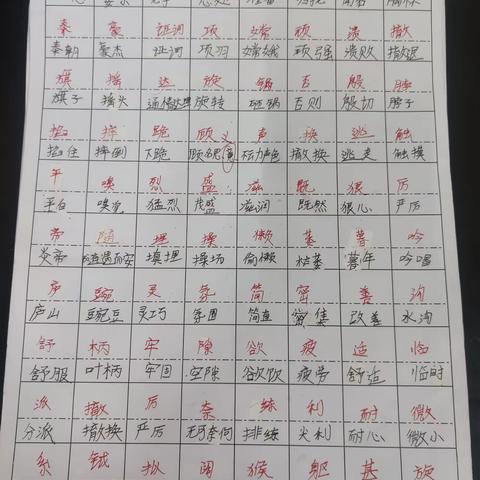 秦 豪 证词 项 嫦 顽 溃 撤
秦朝 豪杰 证词 项羽 嫦娥 顽强 溃败 撤退
旗 摇 达 旋 锅 否 殷 脖
旗子 摇头 通情达理 旋转 砸锅 否则 殷切 脖子
掐 摔 跪 顾 声 换 逃 触
掐住 摔倒 下跪 不动声色 撤换 逃走 触摸
平 嗅 烈 盛 滋 既 狠 厉
平白 嗅觉 猛烈 茂盛 滋润 既然 狠心 严厉
帝 随 埋 操 懒 萎 暮 吟
炎帝 随遇而安 填埋 操场 偷懒 枯萎 暮年 吟唱
庐 豌 灵 氛 简 密 善 沟
庐山 豌豆 灵巧 氛围 简直 密集 改善 水沟
舒 柄 牢 隙 欲 疲 适 临
舒服 叶柄 牢固 空隙 欲饮 疲劳 舒适 临时
派 撤 厉 奈 练 利 耐 微
分派 撤换 严厉 无可奈何 排练 尖利 耐心 微小
系 钺 拟 阔 猴 躯 甚 旋